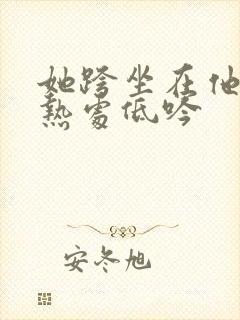 她跨坐在他
熱處低吟
安冬旭